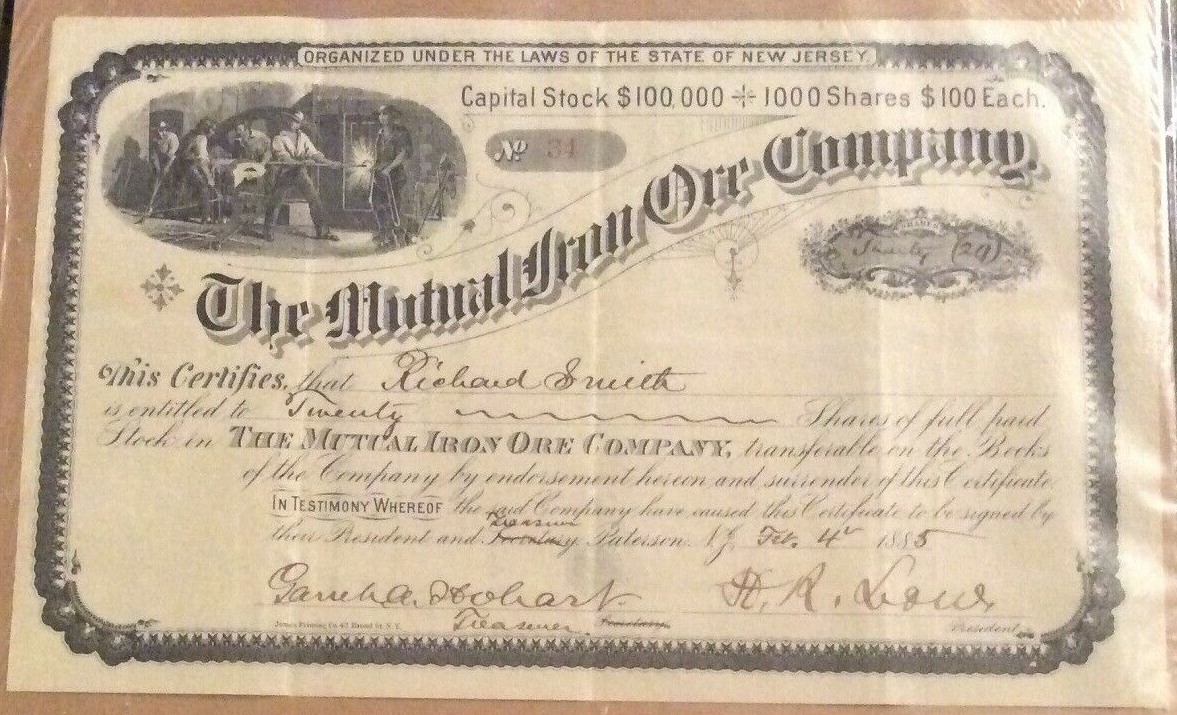 ORGANIZED UNDER THE LAWS OF THE STATE OF NEW JERSEY.
Capital Stock $100,000 ⁜ 1000 Shares $100 Each.
No 34
The Mutual Iron Ore Company.
Twenty (20)
This Certifies, that Richard Smith
is entitled to Twenty Shares of full paid
Stock in THE MUTUAL IRON ORE COMPANY, transferable on the Books
of the Company by endorsement hereon and surrender of this Certificate.
IN TESTIMONY WHEREOF the said Company have caused this Certificate to be signed by
Treasurer
their President and Secretary Paterson N.J. Feb. 4th 1885
Garret A. Hobart H. R. Low
Treasurer. President